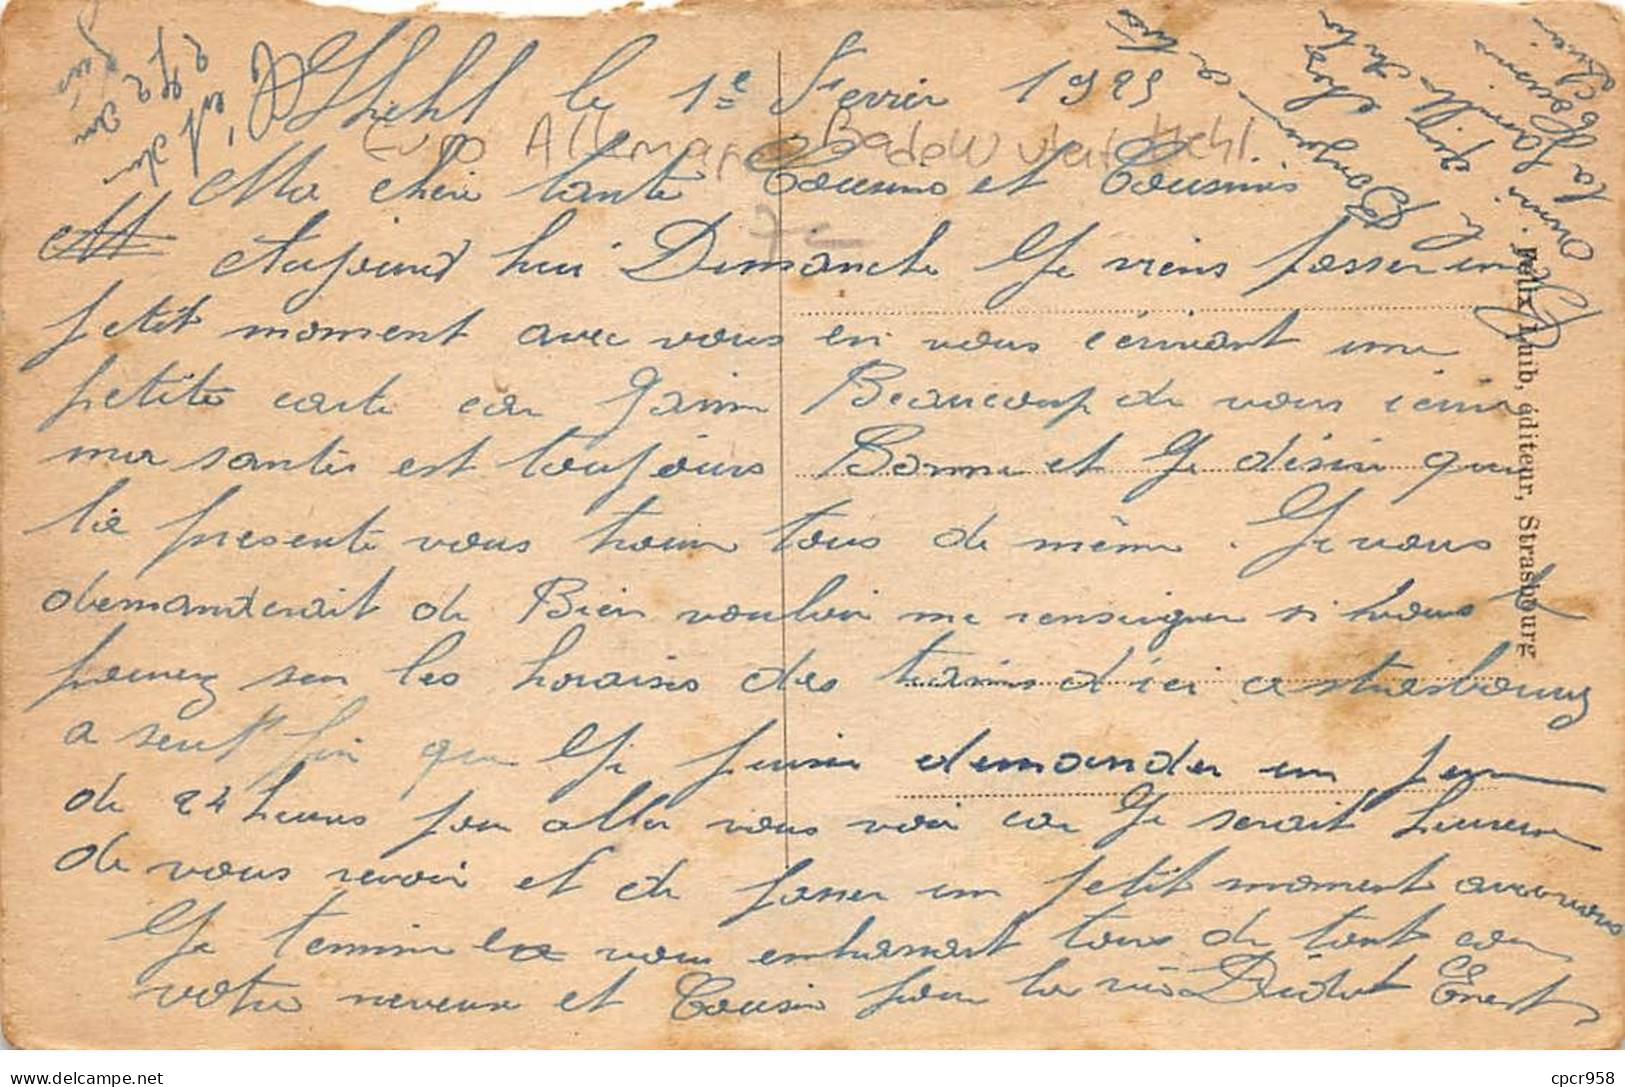 Khehl le 1e Fevrier 1925
Euro Allemagne Badewurtem Kehl
Ma chère tante Cousins et Cousines
Aujourd hui Dimanche Je viens passer un
petit moment avec vous en vous écrivant une
petite carte car J'aime Beaucoup de vous écrire
ma santée est toujours Bonne et Je désire que
la présente vous trouve tous de même. Je vous
demanderait de Bien vouloir me renseigner si vous
pouvez sur les horaires des trains d'ici a strasbourg
a seul fin que Je puisse demander un perm
de 24 heures pour aller vous voir car Je serait heureux
de vous revoir et de passer un petit moment avec vous
Je termine en vous embrassant tous de tout cœur
votre neveux et Cousin pour la vie Didot Ernest
Bonjour a tous
Félix Luib, éditeur, Strasbourg
cpcr958